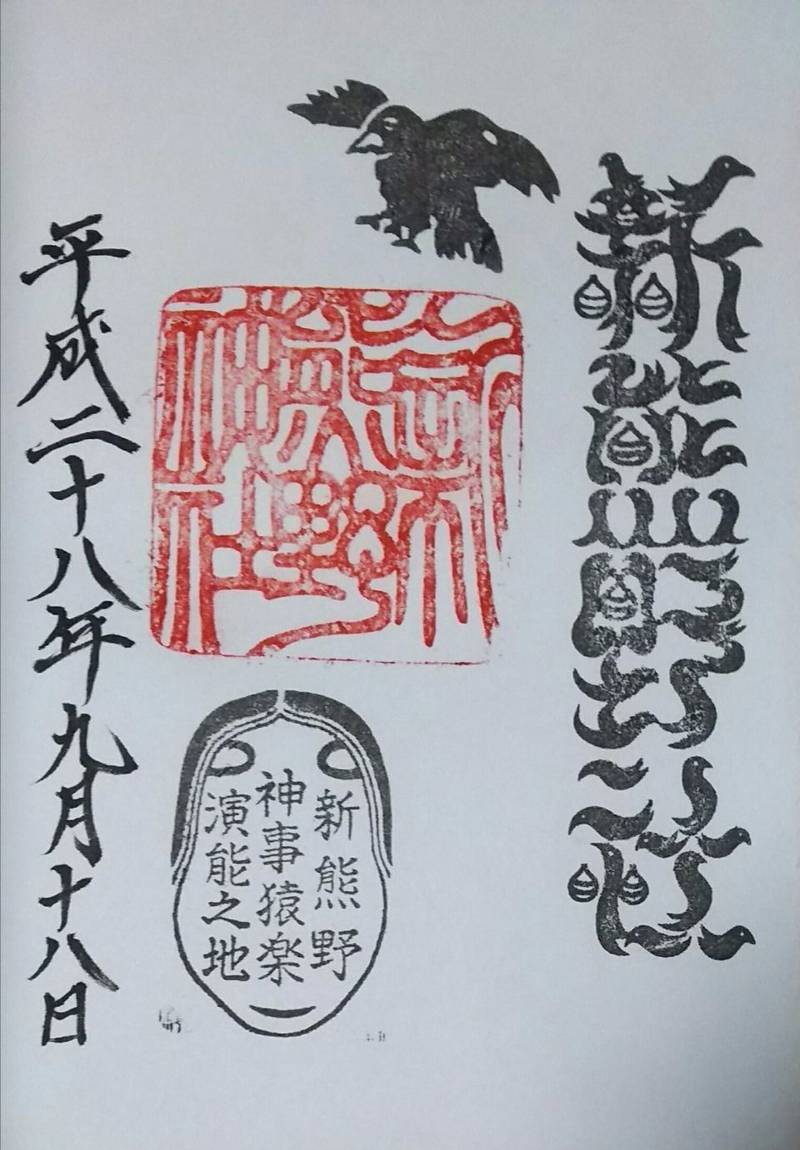 新熊野神社
新熊野神社
新熊野
神事猿楽
演能之地
平成二十八年九月十八日